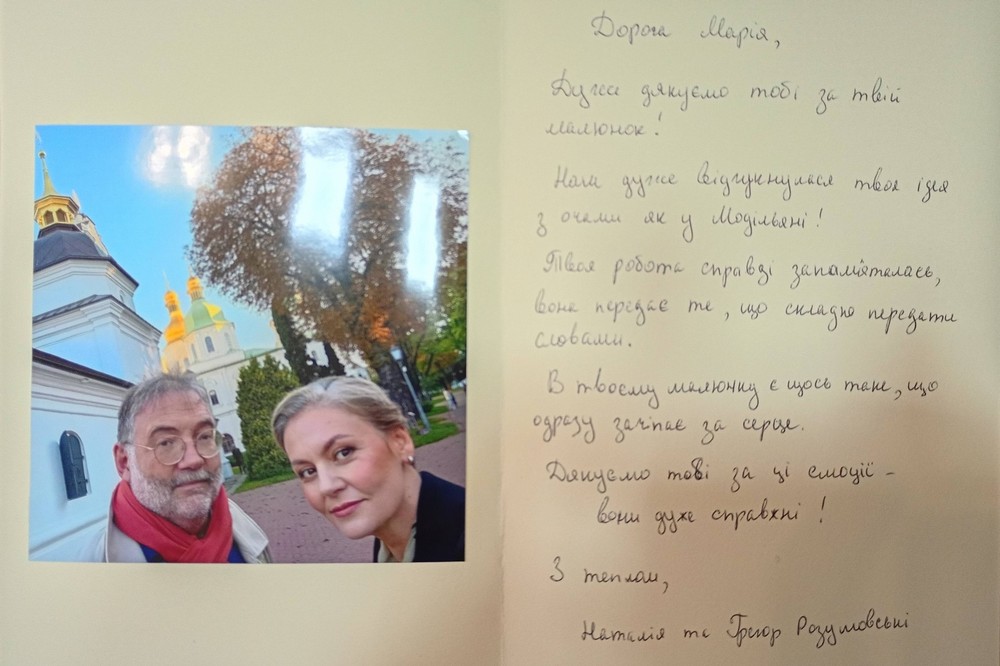 Дорога Марія,
Дуже дякуємо тобі за твій
малюнок!
Нам дуже відгукнулася твоя ідея
з очами як у Модільяні!
Твоя робота справді запам'яталась,
вона передає те, що складно передати
словами.
В твоєму малюнку є щось таке, що
одразу зачіпає за серце.
Дякуємо тобі за ці емоції -
вони дуже справжні!
З теплом,
Наталія та Ґреґор Розумовські